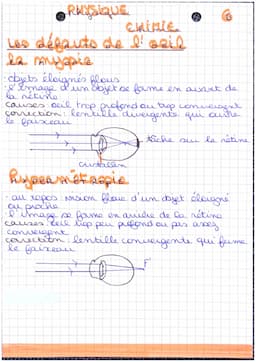 PHYSIQUE
CHIMIE
Les défauts de l'oeil
la myopie
- objets éloignés flous
- l'image d'un objet se forme en avant de
la rétine
causes: oeil trop profond ou trop convergent
correction: lentille divergente qui ouvre
le faisceau
tâche sur la rétine
cristallin
Hypermétropie
- au repos vision floue d'un objet éloigné
ou proche
- l'image se forme en arrière de la rétine
causes: oeil trop peu profond ou pas assez
convergent
correction: lentille convergente qui ferme
le faisceau
F'